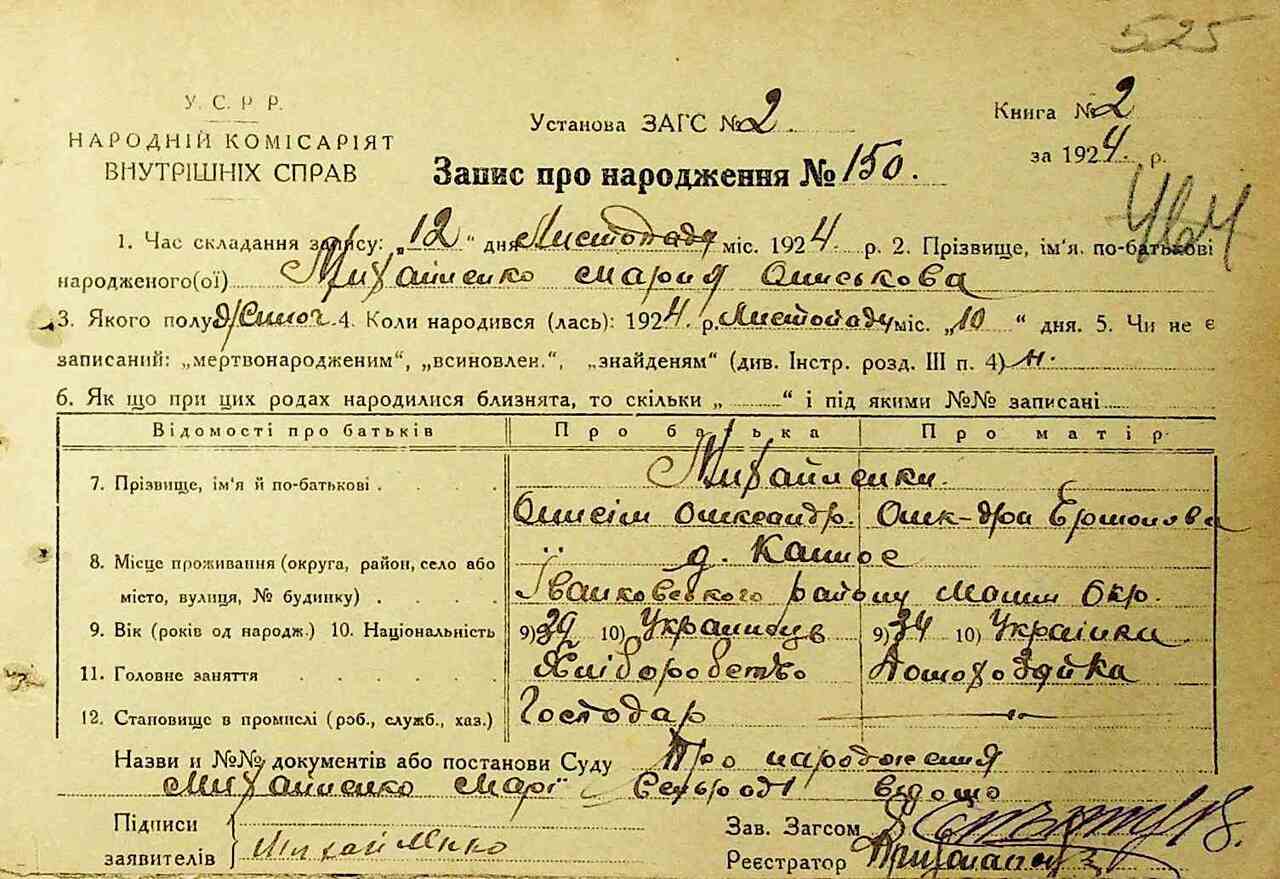 525
У. С. Р Р.
НАРОДНІЙ КОМІСАРІЯТ
ВНУТРІШНІХ СПРАВ
Установа ЗАГС № 2
Книга № 2
за 1924 р.
Запис про народження № 150.
1. Час складання запису: „12" дня Листопаду міс. 1924 р. 2. Прізвище, ім'я. по-батькові
народженого(ої) Михайленко Мария Олиськова
3. Якого полу жіноч. 4. Коли народився (лась): 1924 р. Листопаду міс. „10" дня. 5. Чи не є
записаний: „мертвонародженим", „всиновлен.", „знайденям" (див. Інстр. розд. III п. 4) н.
6. Як що при цих родах народилися близнята, то скільки „ " і під якими №№ записані
Відомості про батьків Про батька Про матір
7. Прізвище, ім'я й по-батькові Михайленки.
Онисім Олександр. Олек-дра
8. Місце проживання (округа, район, село або д.
місто, вулиця, № будинку) Іванковського району Малин Окр.
9. Вік (років од народж.) 10. Національність 9) 39 10) Українець 9) 34 10) Українка
11. Головне заняття Хліборобство Домохозяйка
12. Становище в промислі (роб., служб., хаз.) Господар —
Назви и №№ документів або постанови Суду Про народження
Михайленко Марії Сельраді відомо
Підписи
заявителів Михайленко
Зав. Загсом
Реєстратор